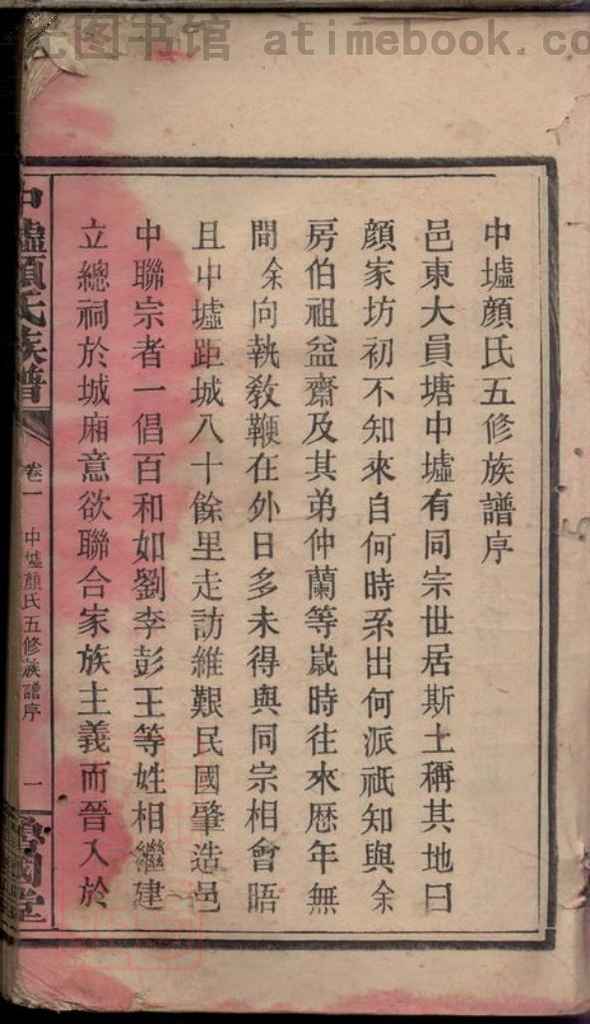 图书馆 atimebook.co
中墟顔氏五修族譜序
邑東大員塘中墟有同宗世居斯土稱其地曰
顔家坊初不知來自何時系出何派祇知與余
房伯祖益齋及其弟仲蘭等歲時往來歷年無
間余向執教鞭在外日多未得與同宗相會晤
且中墟距城八十餘里走訪維艱民國肇造邑
中聯宗者一倡百和如劉李彭王等姓相繼建
立總祠於城廂意欲聯合家族主義而晉入於
中墟顔氏族譜
卷一
中墟顔氏五修族譜序
一
魯國堂